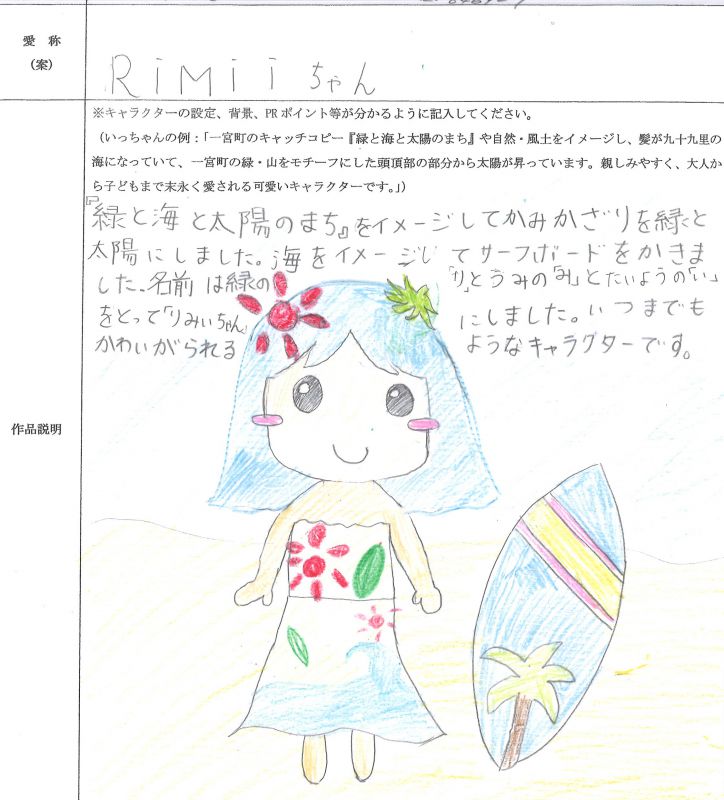 愛 称
(案)
RiMiiちゃん
※キャラクターの設定、背景、PRポイント等が分かるように記入してください。
(いっちゃんの例：「一宮町のキャッチコピー『緑と海と太陽のまち』や自然・風土をイメージし、髪が九十九里の
海になっていて、一宮町の緑・山をモチーフにした頭頂部の部分から太陽が昇っています。親しみやすく、大人か
ら子どもまで末永く愛される可愛いキャラクターです。」)
『緑と海と太陽のまち』をイメージしてかみかざりを緑と
太陽にしました。海をイメージしてサーフボードをかきま
した。名前は緑の「り」とうみの「み」とたいようの「い」
をとって「りみいちゃん」にしました。いつまでも
かわいがられるようなキャラクターです。
作品説明